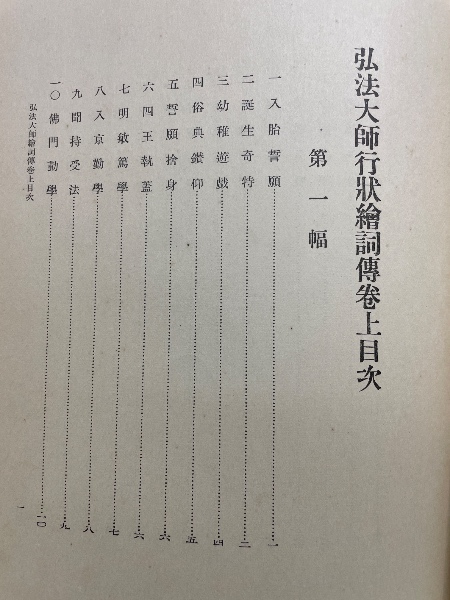 弘法大師行狀繪詞傳卷上目次
第一幅
一 入胎誓願……一
二 誕生奇特……二
三 幼稚遊戲……四
四 俗典鑽仰……五
五 誓願捨身……六
六 四王執蓋……六
七 明敏篤學……七
八 入京勤學……八
九 聞持受法……九
一〇 佛門勤學……一〇
弘法大師繪詞傳卷上目次
一